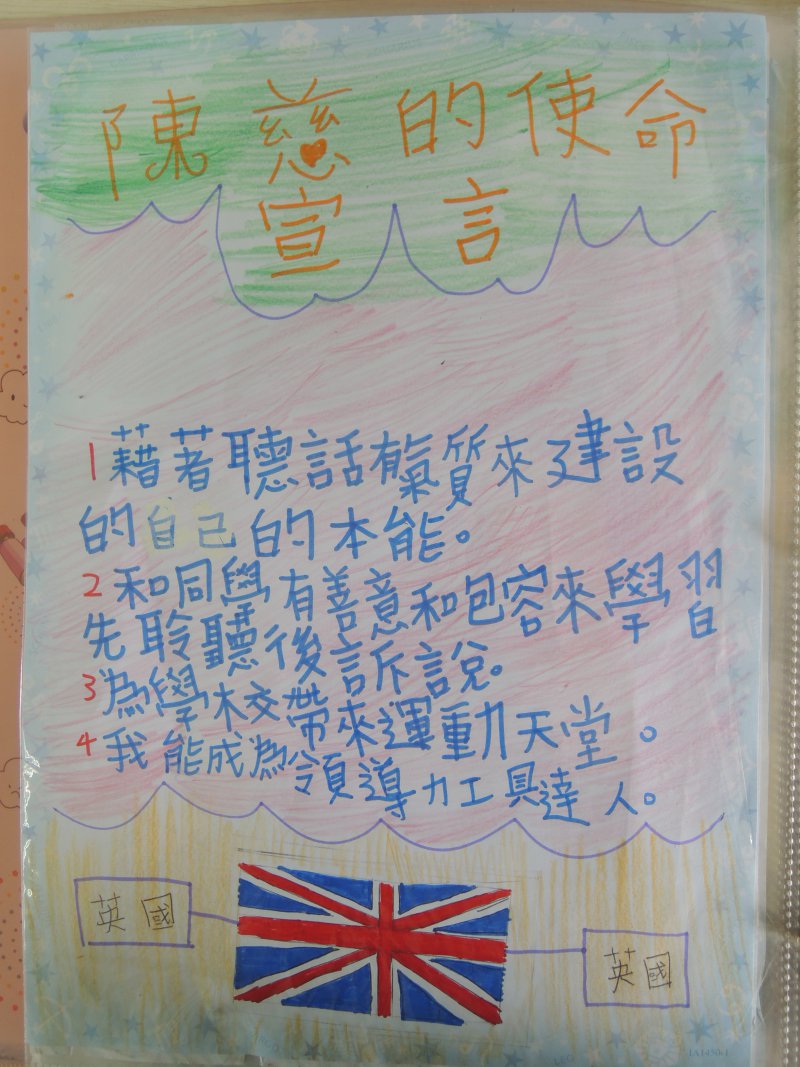 陳慈的使命
宣言
1藉著聽話有氣質來建設
的自己的本能。
2和同學有善意和包容來學習
先聆聽後訴說。
3為學校帶來運動天堂。
4我能成為領導力工具達人。
英國
英國